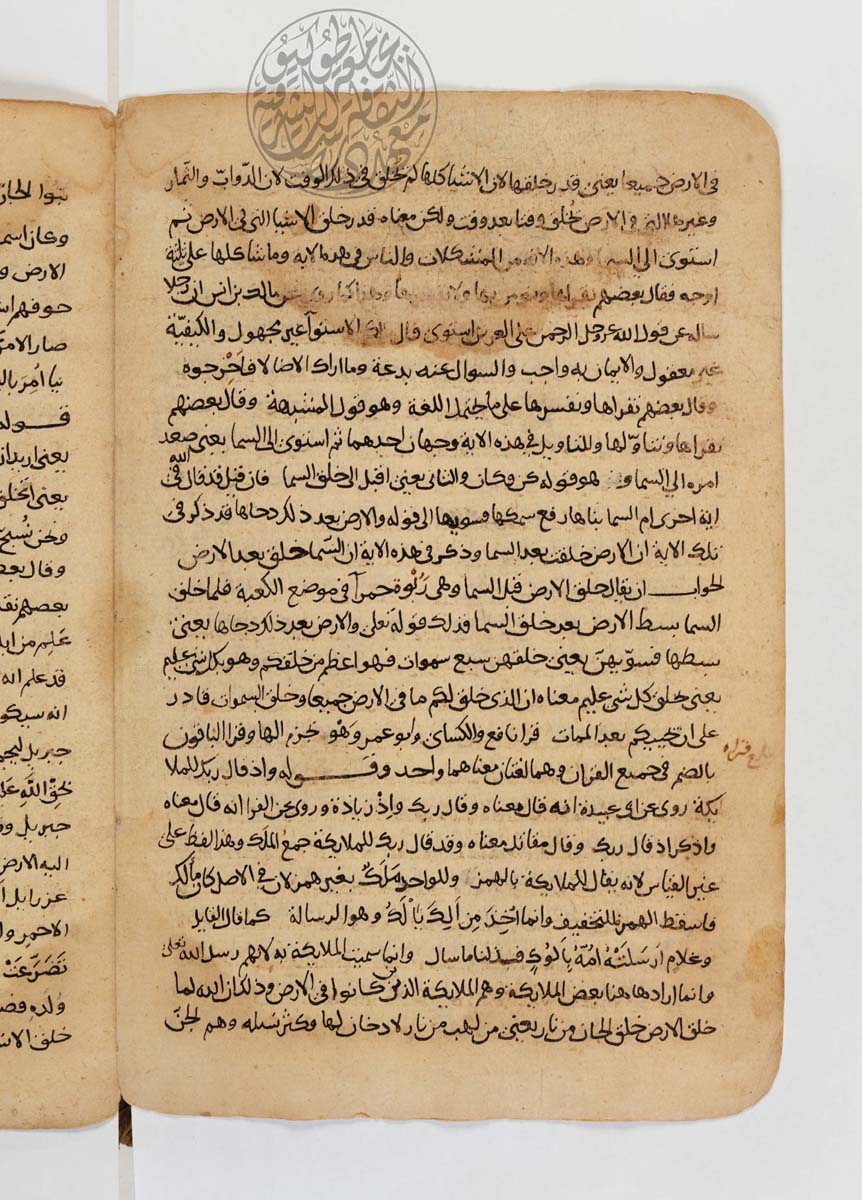 في الارض جميعا يعني قدر خلقها لان الاشيا كلها لم تخلق في ذلك الوقت لان الدواب والثمار
وغيرها التي في الارض تخلق وقتا بعد وقت ولكن معناه قدر خلق الاشيا التي في الارض ثم
استوى الي السما وهذه الاية من المشكلات والناس في هذه الاية وما شاكلها على ثلثة
اوجه فقال بعضهم نقراها ونومن بها ولا نفسرها وهذا كما روي عن مالك بن انس ان رجلا
ساله عن قول الله عز وجل الرحمن على العرش استوى قال مالك الاستوآ غير مجهول والكيفية
غير معقول والايمان به واجب والسوال عنه بدعة وما اراك الا ضالا فاخرجوه
وقال بعضهم نقراها ونفسرها على ما يحتمل اللغة وهو قول المشبهة وقال بعضهم
نقراها ونتاولها وللتاويل في هذه الاية وجهان احدهما ثم استوى الى السما يعني صعد
امره الي السما وهو قوله كن فكان والثاني يعني اقبل الى خلق السما فان قيل قد قال الله في
اية اخرى ام السما بناها رفع سمكها فسويها الى قوله والارض بعد ذلك دحاها قد ذكر في
تلك الاية ان الارض خلقت بعد السما وذكر في هذه الاية ان السما خلق بعد الارض
الجواب ان يقال خلق الارض قبل السما وهى ربوة حمرآ في موضع الكعبة فلما خلق
السما بسط الارض بعد خلق السما فذلك قوله تعلى والارض بعد ذلك دحاها يعني
بسطها فسويهن يعني خلقهن سبع سموات فهو اعظم من خلقكم وهو بكل شي عليم
يعني بخلق كل شي عليم معناه ان الذى خلق لكم ما في الارض جميعا وخلق السموات قادر
على ان يحييكم بعد الممات قرا نافع والكساى وابو عمرو وهو بجزم الها وقرا الباقون
بالضم في جميع القران وهما لغتان معناهما واحد وقوله واذ قال ربك للملا
يكة روى عن ابي عبيدة انه قال معناه وقال ربك واذ زيادة وروى عن الفرا انه قال معناه
واذكر اذ قال ربك وقال مقاتل معناه وقد قال ربك للملايكة جمع الملك وهذا اللفظ على
غير القياس لانه يقال الملايكة بالهمز وللواحد ملك بغير همز لان في الاصل كان مالك
فاسقط الهمز للتخفيف وانما اخذ من الك يالك وهو الرسالة كما قال القايل
وغلام ارسلته امه بالوك فبذلنا ما سال وانما سميت الملايكة به لانهم رسل الله تعلى
وانما اراد هاهنا بعض الملايكة وهم الملايكة الذين كانوا في الارض وذلك ان الله لما
خلق الارض خلق الجان من نار يعني من لهب من نار لا دخان لها فكثر نسله وهم الجن
بلغ قراه